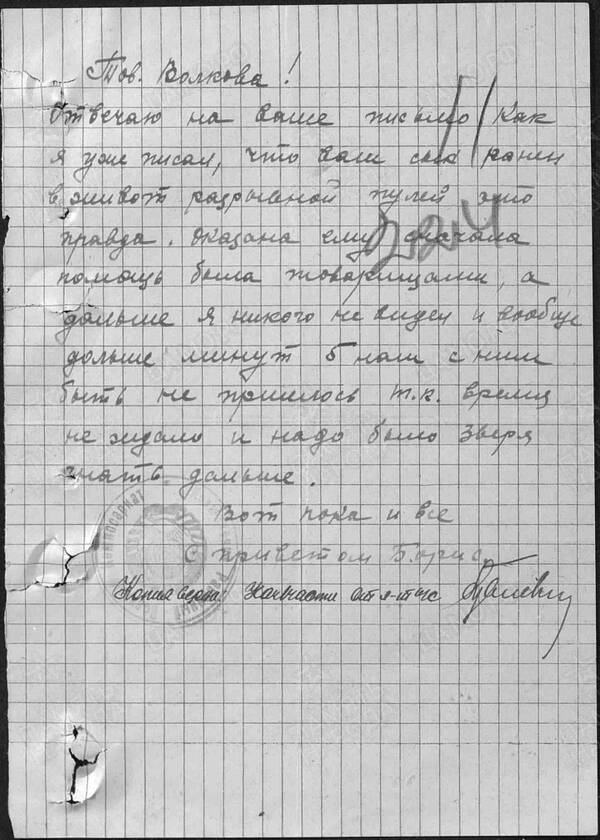 Тов. Волкова!
Отвечаю на ваше письмо Как
я уже писал, что ваш сын ранен
в живот разрывной пулей это
правда. Оказана ему сначала
помощь была товарищами, а
дальше я никого не видел и вообще
дольше минут 5 нам с ним
быть не пришлось т.к. время
не ждало и надо было зверя
гнать дальше.
Вот пока и все
С приветом Борис.
Копия верна: